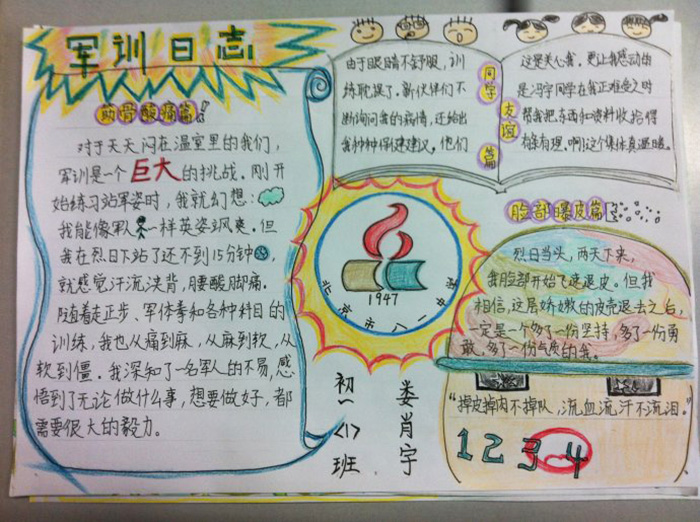 军训日志
筋骨酸痛篇!
对于天天闷在温室里的我们,
军训是一个巨大的挑战。刚开
始练习站军姿时,我就幻想:
我能像军人一样英姿飒爽。但
我在烈日下站了还不到15分钟,
就感觉汗流浃背,腰酸脚痛。
随着走正步、军体拳和各种科目的
训练,我也从痛到麻,从麻到软,从
软到僵。我深知了一名军人的不易,感
悟到了无论做什么事,想要做好,都
需要很大的毅力。
同学友谊篇
由于眼睛不舒服,训
练耽误了。新伙伴们不
断询问我的病情,还给出
我种种保健建议。他们
这是关心我。更让我感动的
是冯宇同学在我正难受之时
帮我把东西和资料收拾得
有条有理。啊!这个集体真温暖。
1947
北京市八一中学
初一
<1>
班
娄肖宇
脸部曝皮篇
烈日当头,两天下来,
我脸部开始飞速退皮。但我
相信,这层娇嫩的皮壳退去之后,
一定是一个多了一份坚持,多了一份勇
敢,多了一份气质的我。
“掉皮掉肉不掉队,流血流汗不流泪。”
1 2 3 4